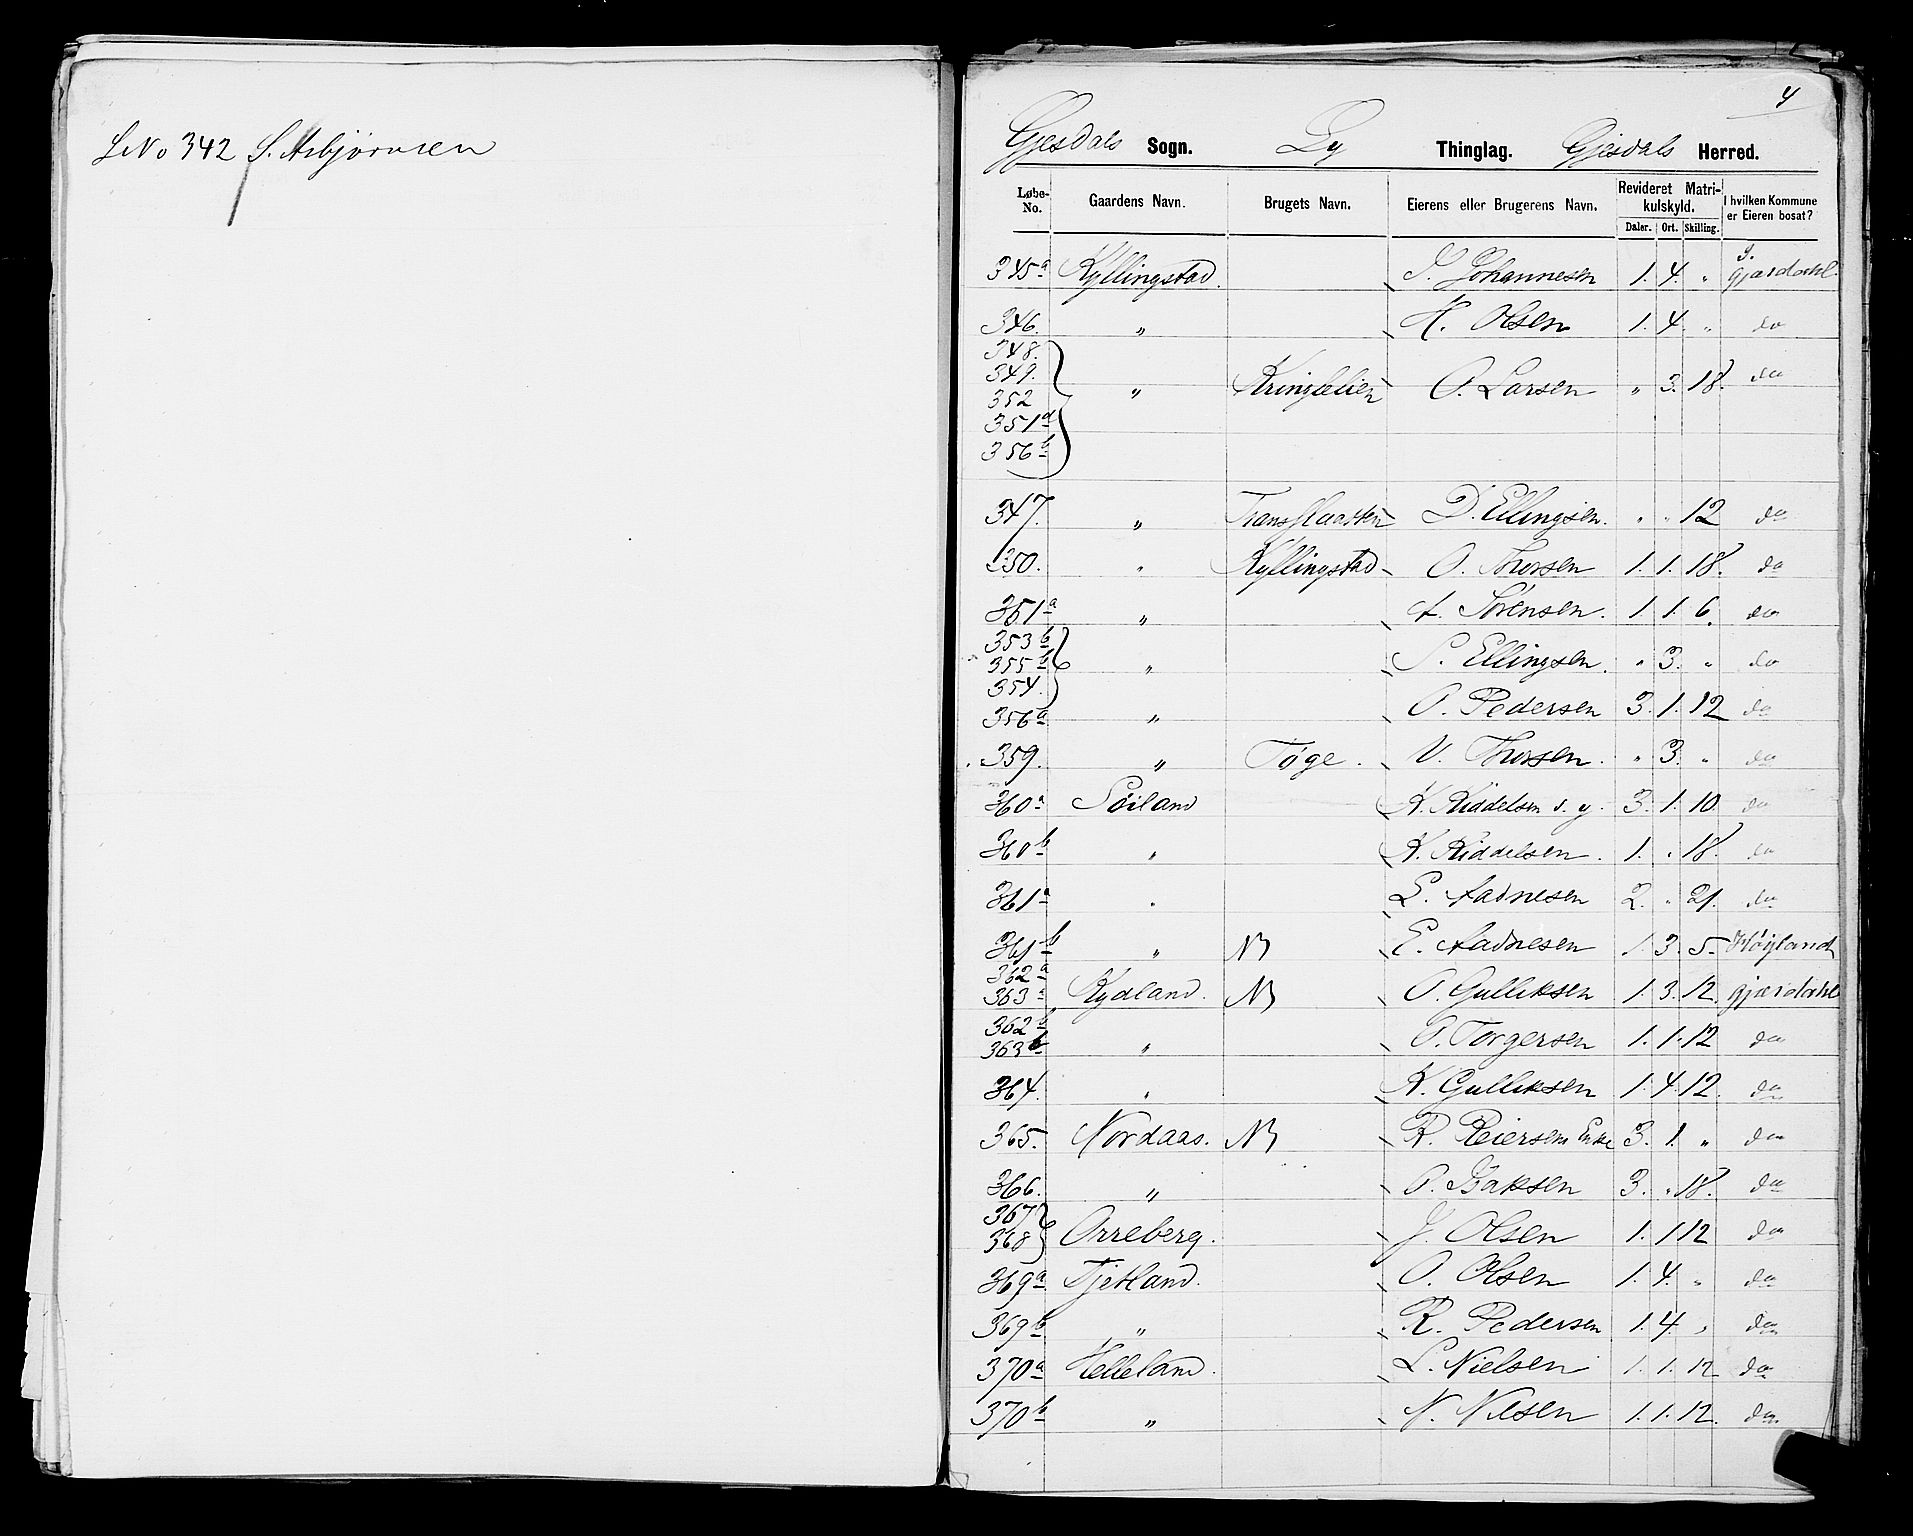 LNo 342 S. Asbjørnsen
4
Gjesdals Sogn. Ly Thinglag. Gjesdals Herred.
Løbe-No. Gaardens Navn. Brugets Navn. Eierens eller Brugerens Navn. Revideret Matrikulskyld. I hvilken Kommune er Eieren bosat?
Daler. Ort. Skilling.
345a Kyllingstad. J. Johannesen 1. 4. " Gjæsdahl.
346. " H. Olsen 1. 4. " do
348.
349.
352 " Kringlelien O. Larsen " 3. 18. do
351d
356b
347. " D. Ellingsen. " " 12 do
350. " Kyllingstad O. Thorsen 1. 1. 18. do
351a " A. Sørensen. 1. 1. 6. do
353b
355b " S. Ellingsen. " 3. " do
354.
356a " O. Pedersen 3. 1. 12 do
359. " Tøge. V. Thorsen. " 3. " do
360a Søiland K. Kiddelsen d. y. 3. 1. 10 do
360b " K. Kiddelsen. 1. " 18. do
361a " L. Aadnesen 2. " 21. do
361b " NB E. Aadnesen 1. 3. 5. Høyland
362a
363a Kydland. NB O. Gulliksen 1. 3. 12. Gjæsdahl
362b
363b " O. Torgersen 1. 1. 12 do
364. " K. Gulliksen 1. 4. 12. do
365. Nordaas. NB R. Reiersens Enke 3. 1. " do
366. " O. Isaksen 3. " 18. do
367
368 Orreberg. J. Olsen 1. 1 12 do
369a Tjetland. O. Olsen 1. 4. " do
369b " R. Pedersen 1. 4. " do
370a Helleland. L. Nielsen 1. 1. 12 do
370b " N. Nilsen 1. 1. 12. do